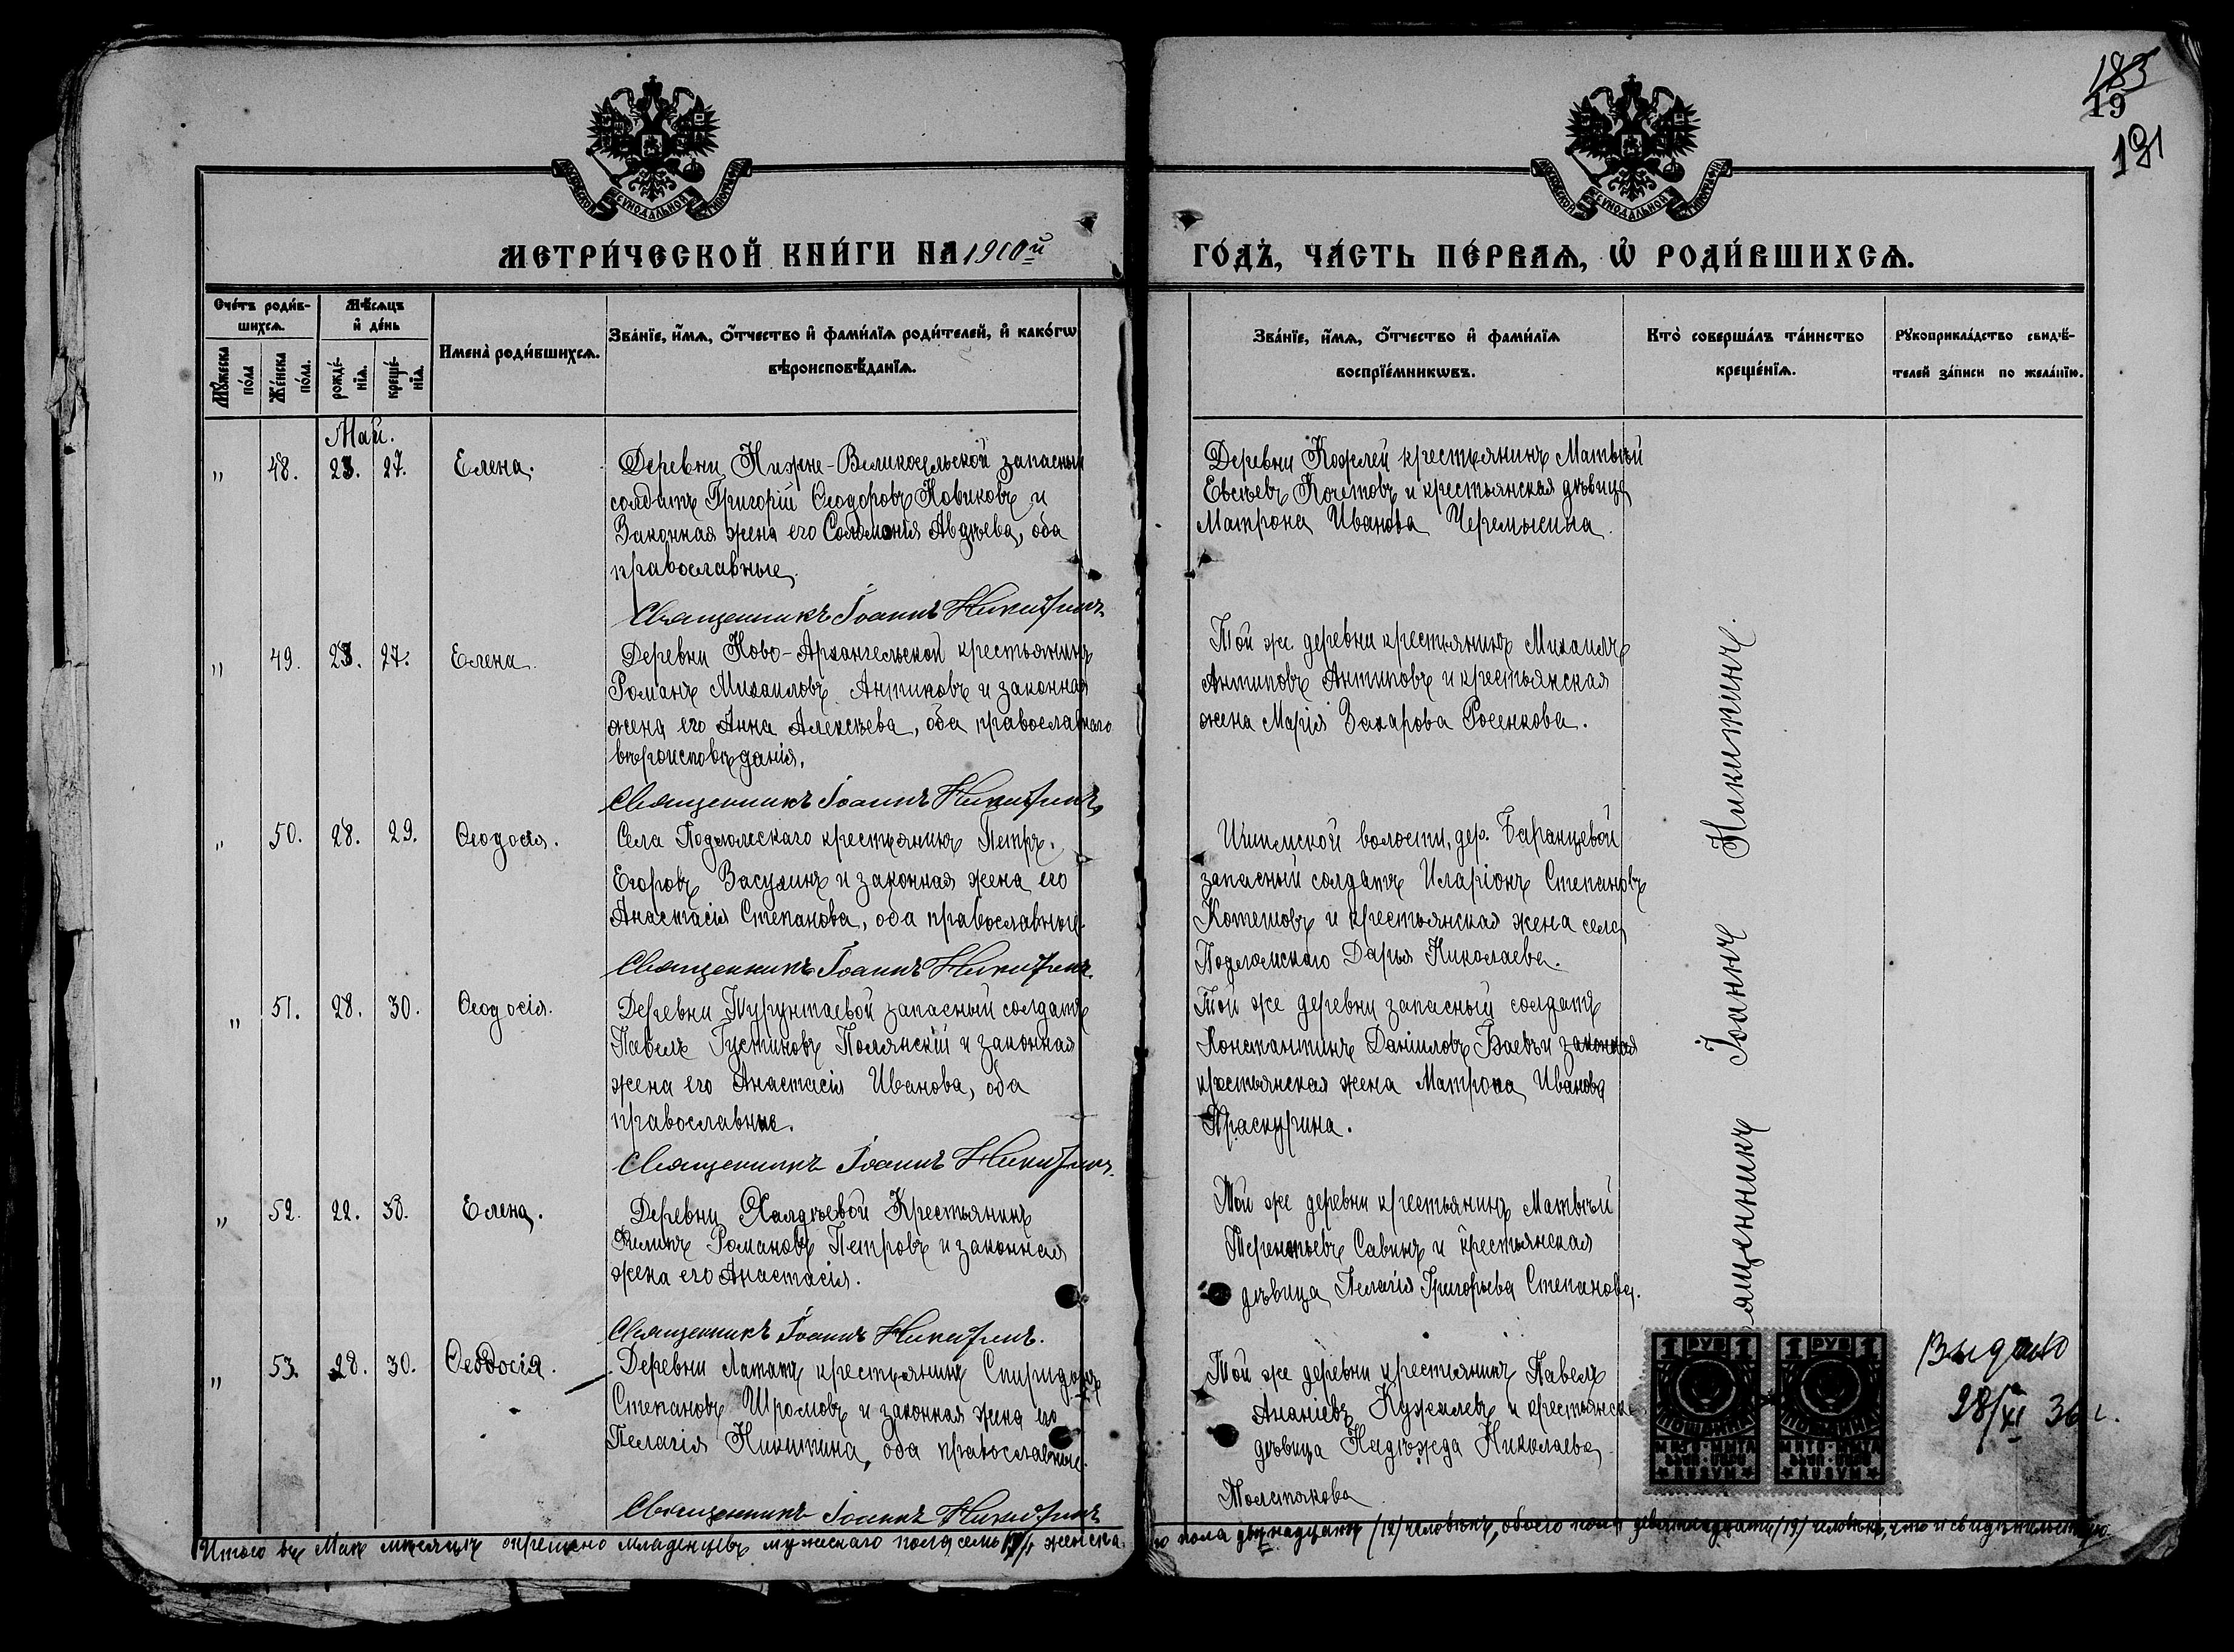 183
19
191
МОСКОВСКОЙ СУНОДАЛЬНОЙ ТИПОГРАФІИ
МОСКОВСКОЙ СУНОДАЛЬНОЙ ТИПОГРАФІИ
МЕТРИ́ЧЕСКОЙ КНИ́ГИ НА 1910й
ГО́ДЪ, ЧА́СТЬ ПЕ́РВАѦ, Ѡ РОДИ́ВШИХСѦ.
Сче́тъ роди́в-
шихсѧ.
Мѣ́сѧцъ
и де́нь
Мꙋ́жеска
по́ла
Же́нска
по́ла.
рожде́-
нїѧ.
креще́-
нїѧ.
Имена̀ роди́вшихсѧ.
Зва́нїе, и́мѧ, ѻ́тчество и фами́лїѧ роди́телей, и како́гѡ
вѣроисповѣ́данїѧ.
Зва́нїе, и́мѧ, ѻ́тчество и фами́лїѧ
воспрїе́мникѡвъ.
Кто̀ соверша́лъ та́инство
креще́нїѧ.
Рꙋкоприкла́дство свидѣ́-
телей за́писи по жела́нїю.
Май.
" 48. 23. 27. Елена.
Деревни Нижне-Великосельской запасный
солдатъ Григорій Ѳеодоровъ Новиковъ и
Законная жена его Соломонія Авдѣева, оба
православные.
Священникъ Іоаннъ Никитинъ
Деревни Кожлей крестьянинъ Матвѣй
Евсѣевъ Кочетовъ и крестьянская дѣвица
Матрона Иванова Черемыкина.
" 49. 23. 27. Елена.
Деревни Ново-Архангельской крестьянинъ
Романъ Михаиловъ Антиповъ и законная
жена его Анна Алексѣева, оба православнаго
вѣроисповѣданія.
Священникъ Іоаннъ Никитинъ
Той же деревни крестьянинъ Михаилъ
Антиповъ Антиповъ и крестьянская
жена Марія Захарова Росенкова.
" 50. 28. 29. Ѳеодосія.
Села крестьянинъ Петръ
Егоровъ Васулинъ и законная жена его
Анастасія Степанова, оба православные.
Священникъ Іоаннъ Никитинъ.
волости, дер. Баранцевой
запасный солдатъ Иларіонъ Степановъ
Котешовъ и крестьянская жена села
Дарья Николаева.
" 51. 28. 30. Ѳеодосія.
Деревни Турунтаевой запасный солдатъ
Павелъ Густиновъ Полянскій и законная
жена его Анастасія Иванова, оба
православные.
Священникъ Іоаннъ Никитинъ.
Той же деревни запасный солдатъ
Константинъ Даніиловъ Баевъ и законная
крестьянская жена Матрона Иванова
Праскурина.
" 52. 22. 30. Елена.
Деревни Халдѣевой Крестьянинъ
Филипъ Романовъ Петровъ и законная
жена его Анастасія.
Священникъ Іоаннъ Никитинъ.
Той же деревни крестьянинъ Матвѣй
Терентьевъ Савинъ и крестьянская
дѣвица Пелагія Григорьева Степанова.
" 53. 28. 30. Ѳеодосія.
Деревни Лататъ крестьянинъ Спиридонъ
Степановъ Шромовъ и законная жена его
Пелагія Никитина, оба православные.
Священникъ Іоаннъ Никитинъ
Той же деревни крестьянинъ Павелъ
Ананіевъ и крестьянская
дѣвица Надѣжда Николаева
Толстякова
Священникъ Іоаннъ Никитинъ.
1 РУБ 1
1 РУБ 1
ПОШЛИНА
ПОШЛИНА
Выдано
28/XI 36 г.
Итого въ Маѣ мѣсяцѣ окрещено младенцевъ мужескаго пола семь /7/ женска го пола двѣнадцать /12/ человѣкъ, обоего пола девятнадцать /19/ человѣкъ, что и свидѣтельствую